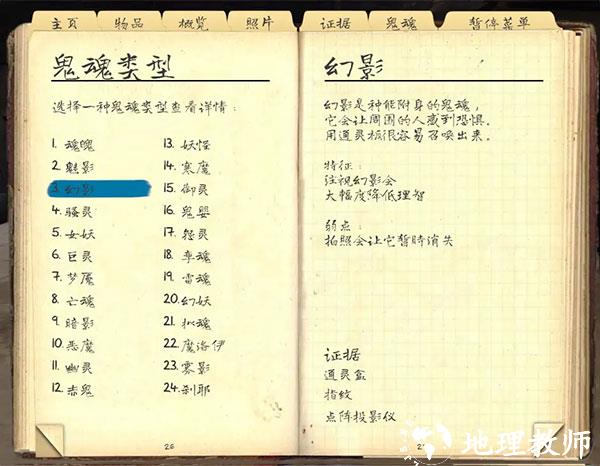 主页 物品 概览 照片 证据 鬼魂 暂停菜单
鬼魂类型
选择一种鬼魂类型查看详情：
1. 魂魄
2. 魅影
3. 幻影
4. 骚灵
5. 女妖
6. 巨灵
7. 梦魇
8. 亡魂
9. 暗影
10. 恶魔
11. 幽灵
12. 赤鬼
13. 妖怪
14. 寒魔
15. 御灵
16. 鬼婴
17. 怨灵
18. 孪魂
19. 雷魂
20. 幻妖
21. 拟魂
22. 魔洛伊
23. 雾影
24. 刹耶
26
幻影
幻影是种能附身的鬼魂，
它会让周围的人感到恐惧。
用通灵板很容易召唤出来。
特征：
注视幻影会
大幅度降低理智
弱点：
拍照会让它暂时消失
证据
通灵盒
指纹
点阵投影仪
地理教师